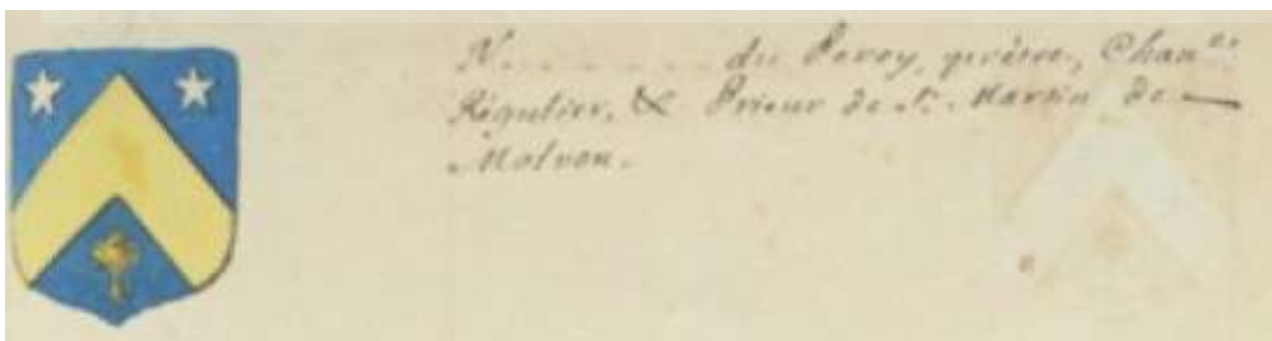 N. . . . . . . du Perey, prêtre, Chan.ne
Régulier, & Prieur de St. Martin de —
Molvon.